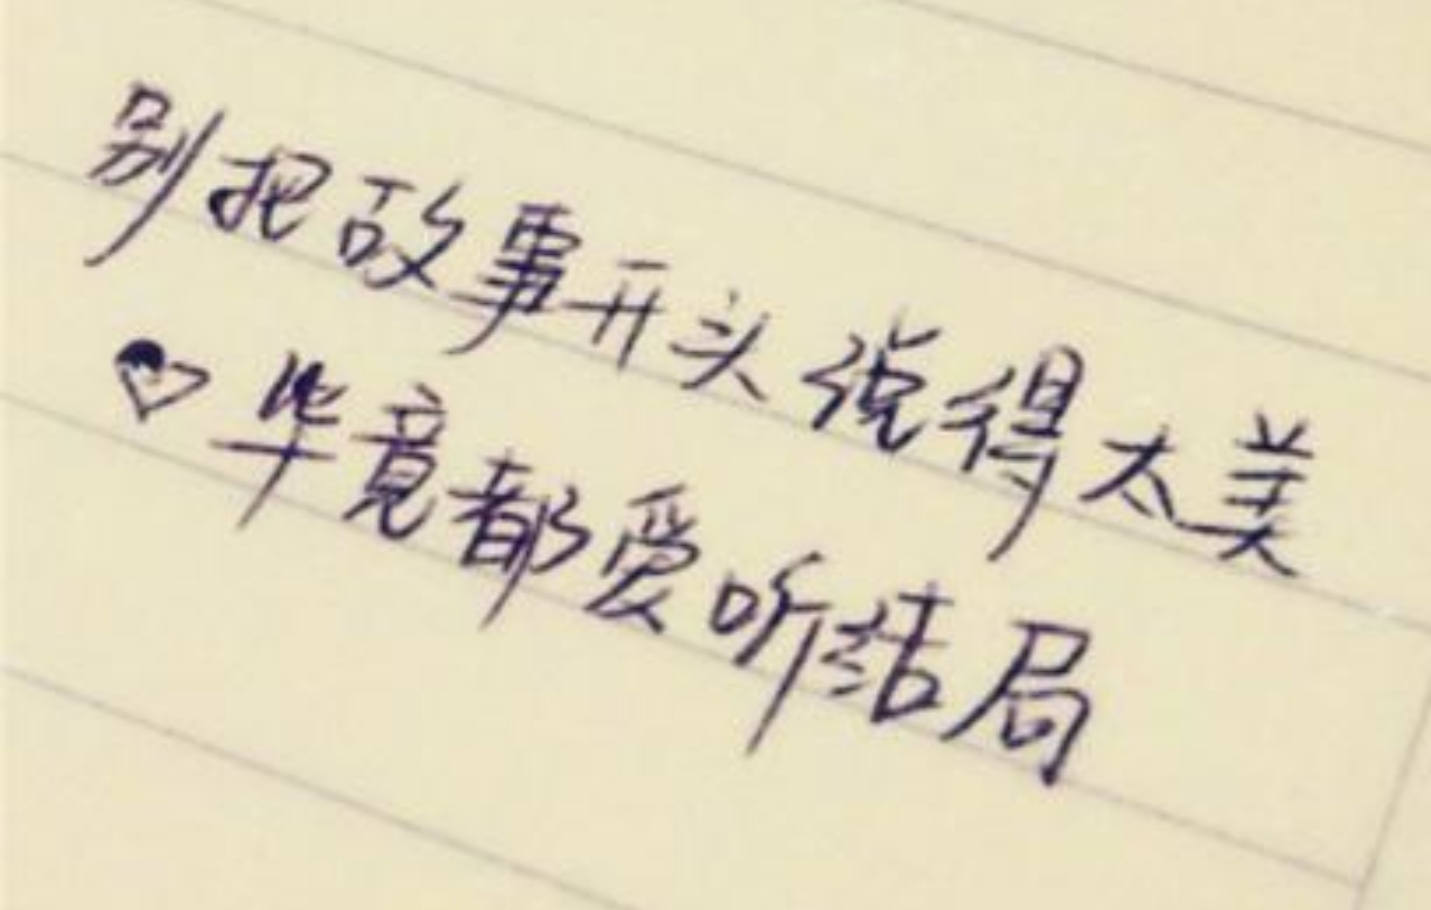 别把故事开头说得太美
♡毕竟都爱听结局